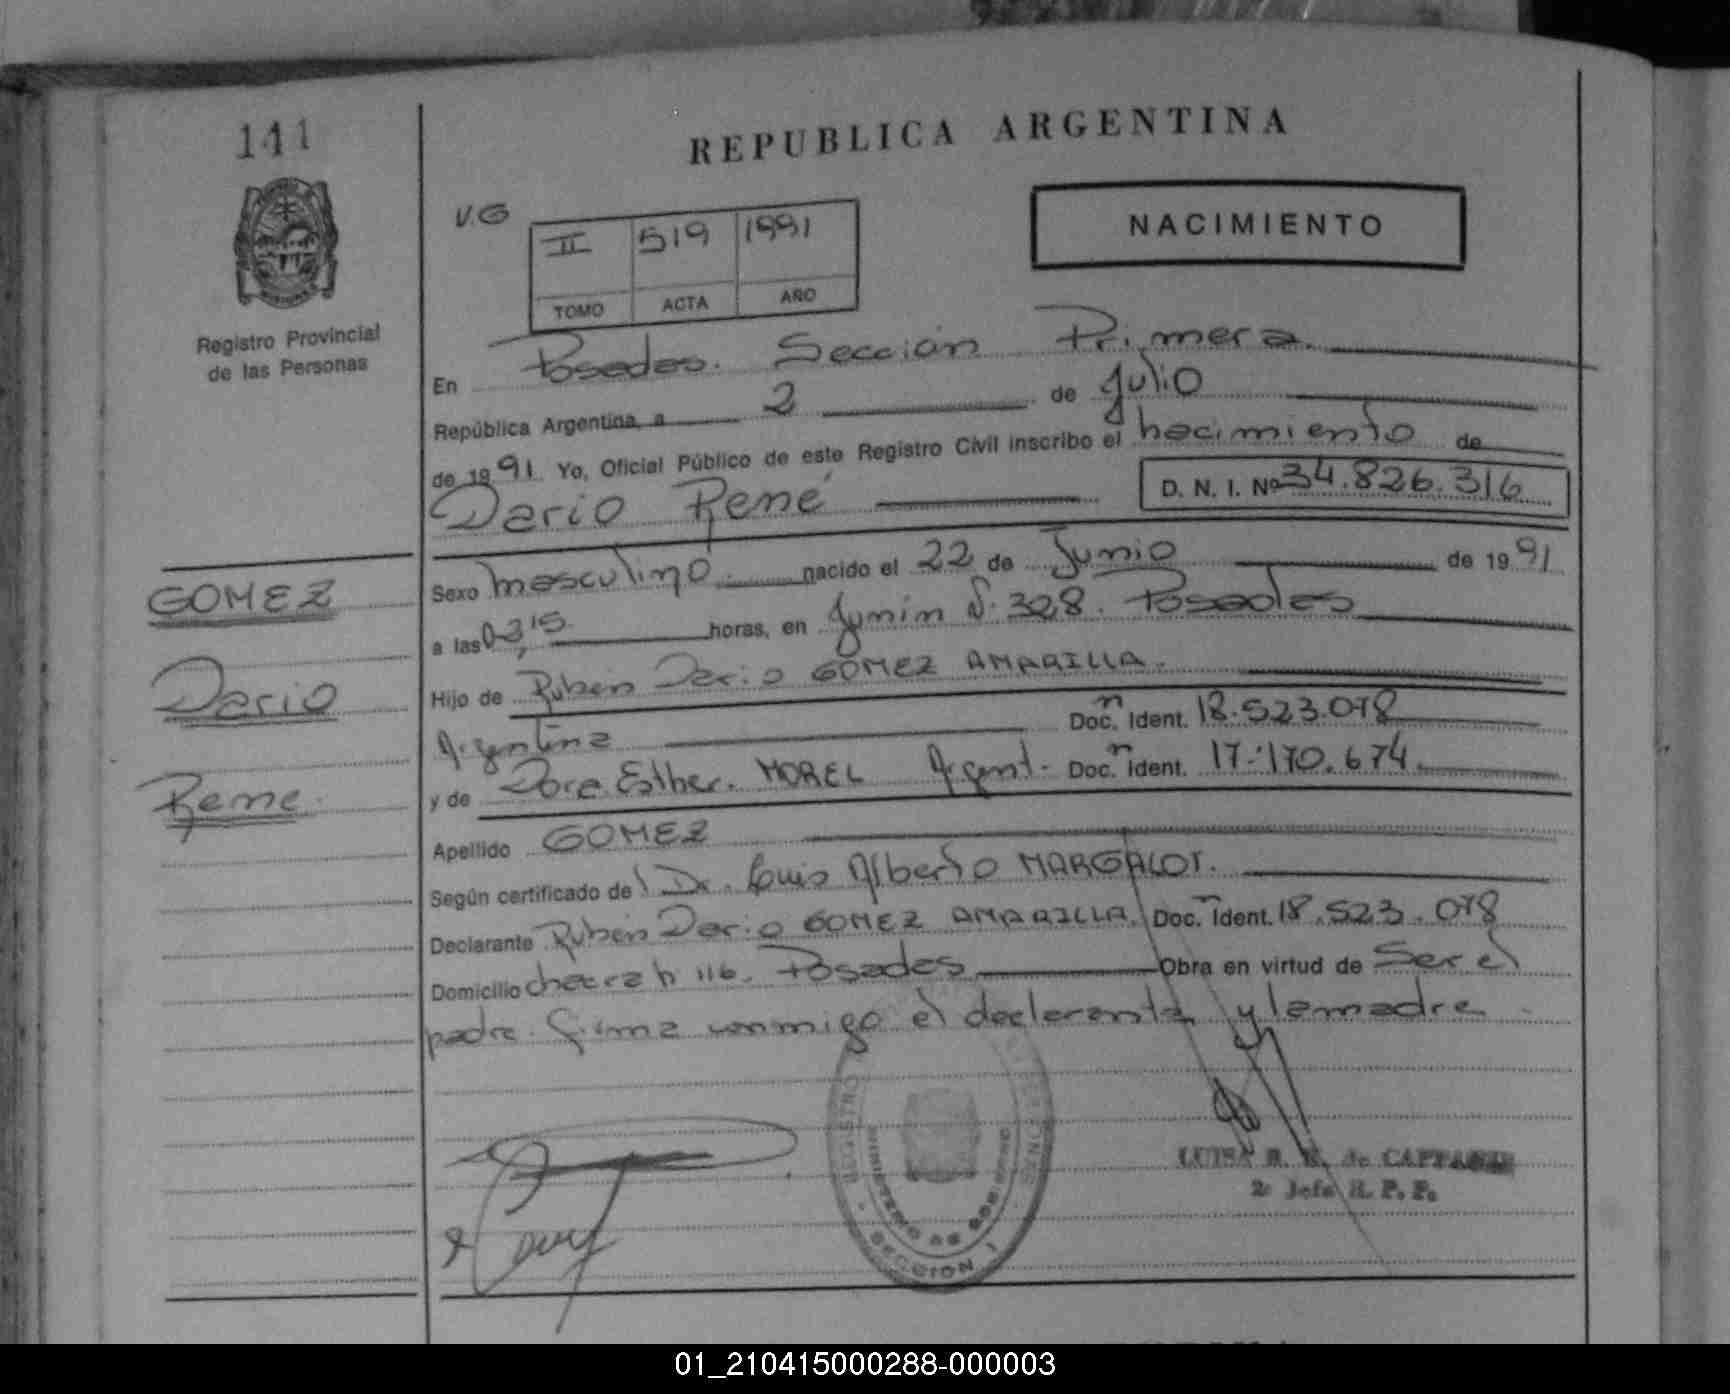 141
REPUBLICA ARGENTINA
V.G
II 519 1991
TOMO ACTA AÑO
NACIMIENTO
Registro Provincial
de las Personas
En Posadas. Sección Primera
República Argentina, a 2 de Julio
de 1991 Yo, Oficial Público de este Registro Civil inscribo el nacimiento de
Dario René D. N. I. Nº 34.826.316
GOMEZ
Dario
Rene.
Sexo masculino. nacido el 22 de Junio de 1991
a las 0-3,15. horas, en Junin N. 328. Posadas
Hijo de Ruben Dario GOMEZ AMARILLA.
Argentina Doc. n Ident. 18.523.078
y de Dora Esther. MOREL Argent. Doc. n Ident. 17.170.674.
Apellido GOMEZ
Según certificado del Dr. Luis Alberto MARGALOT.
Declarante Ruben Dario GOMEZ AMARILLA. Doc. n Ident. 18.523.078
Domicilio chacra n 116. Posadas Obra en virtud de Ser el
padre. firma conmigo el declarante y la madre.
REGISTRO
MINISTERIO DE GOBIERNO
SECCION 1
LUISA de
2º Jefe R. P. P.
01_210415000288-000003